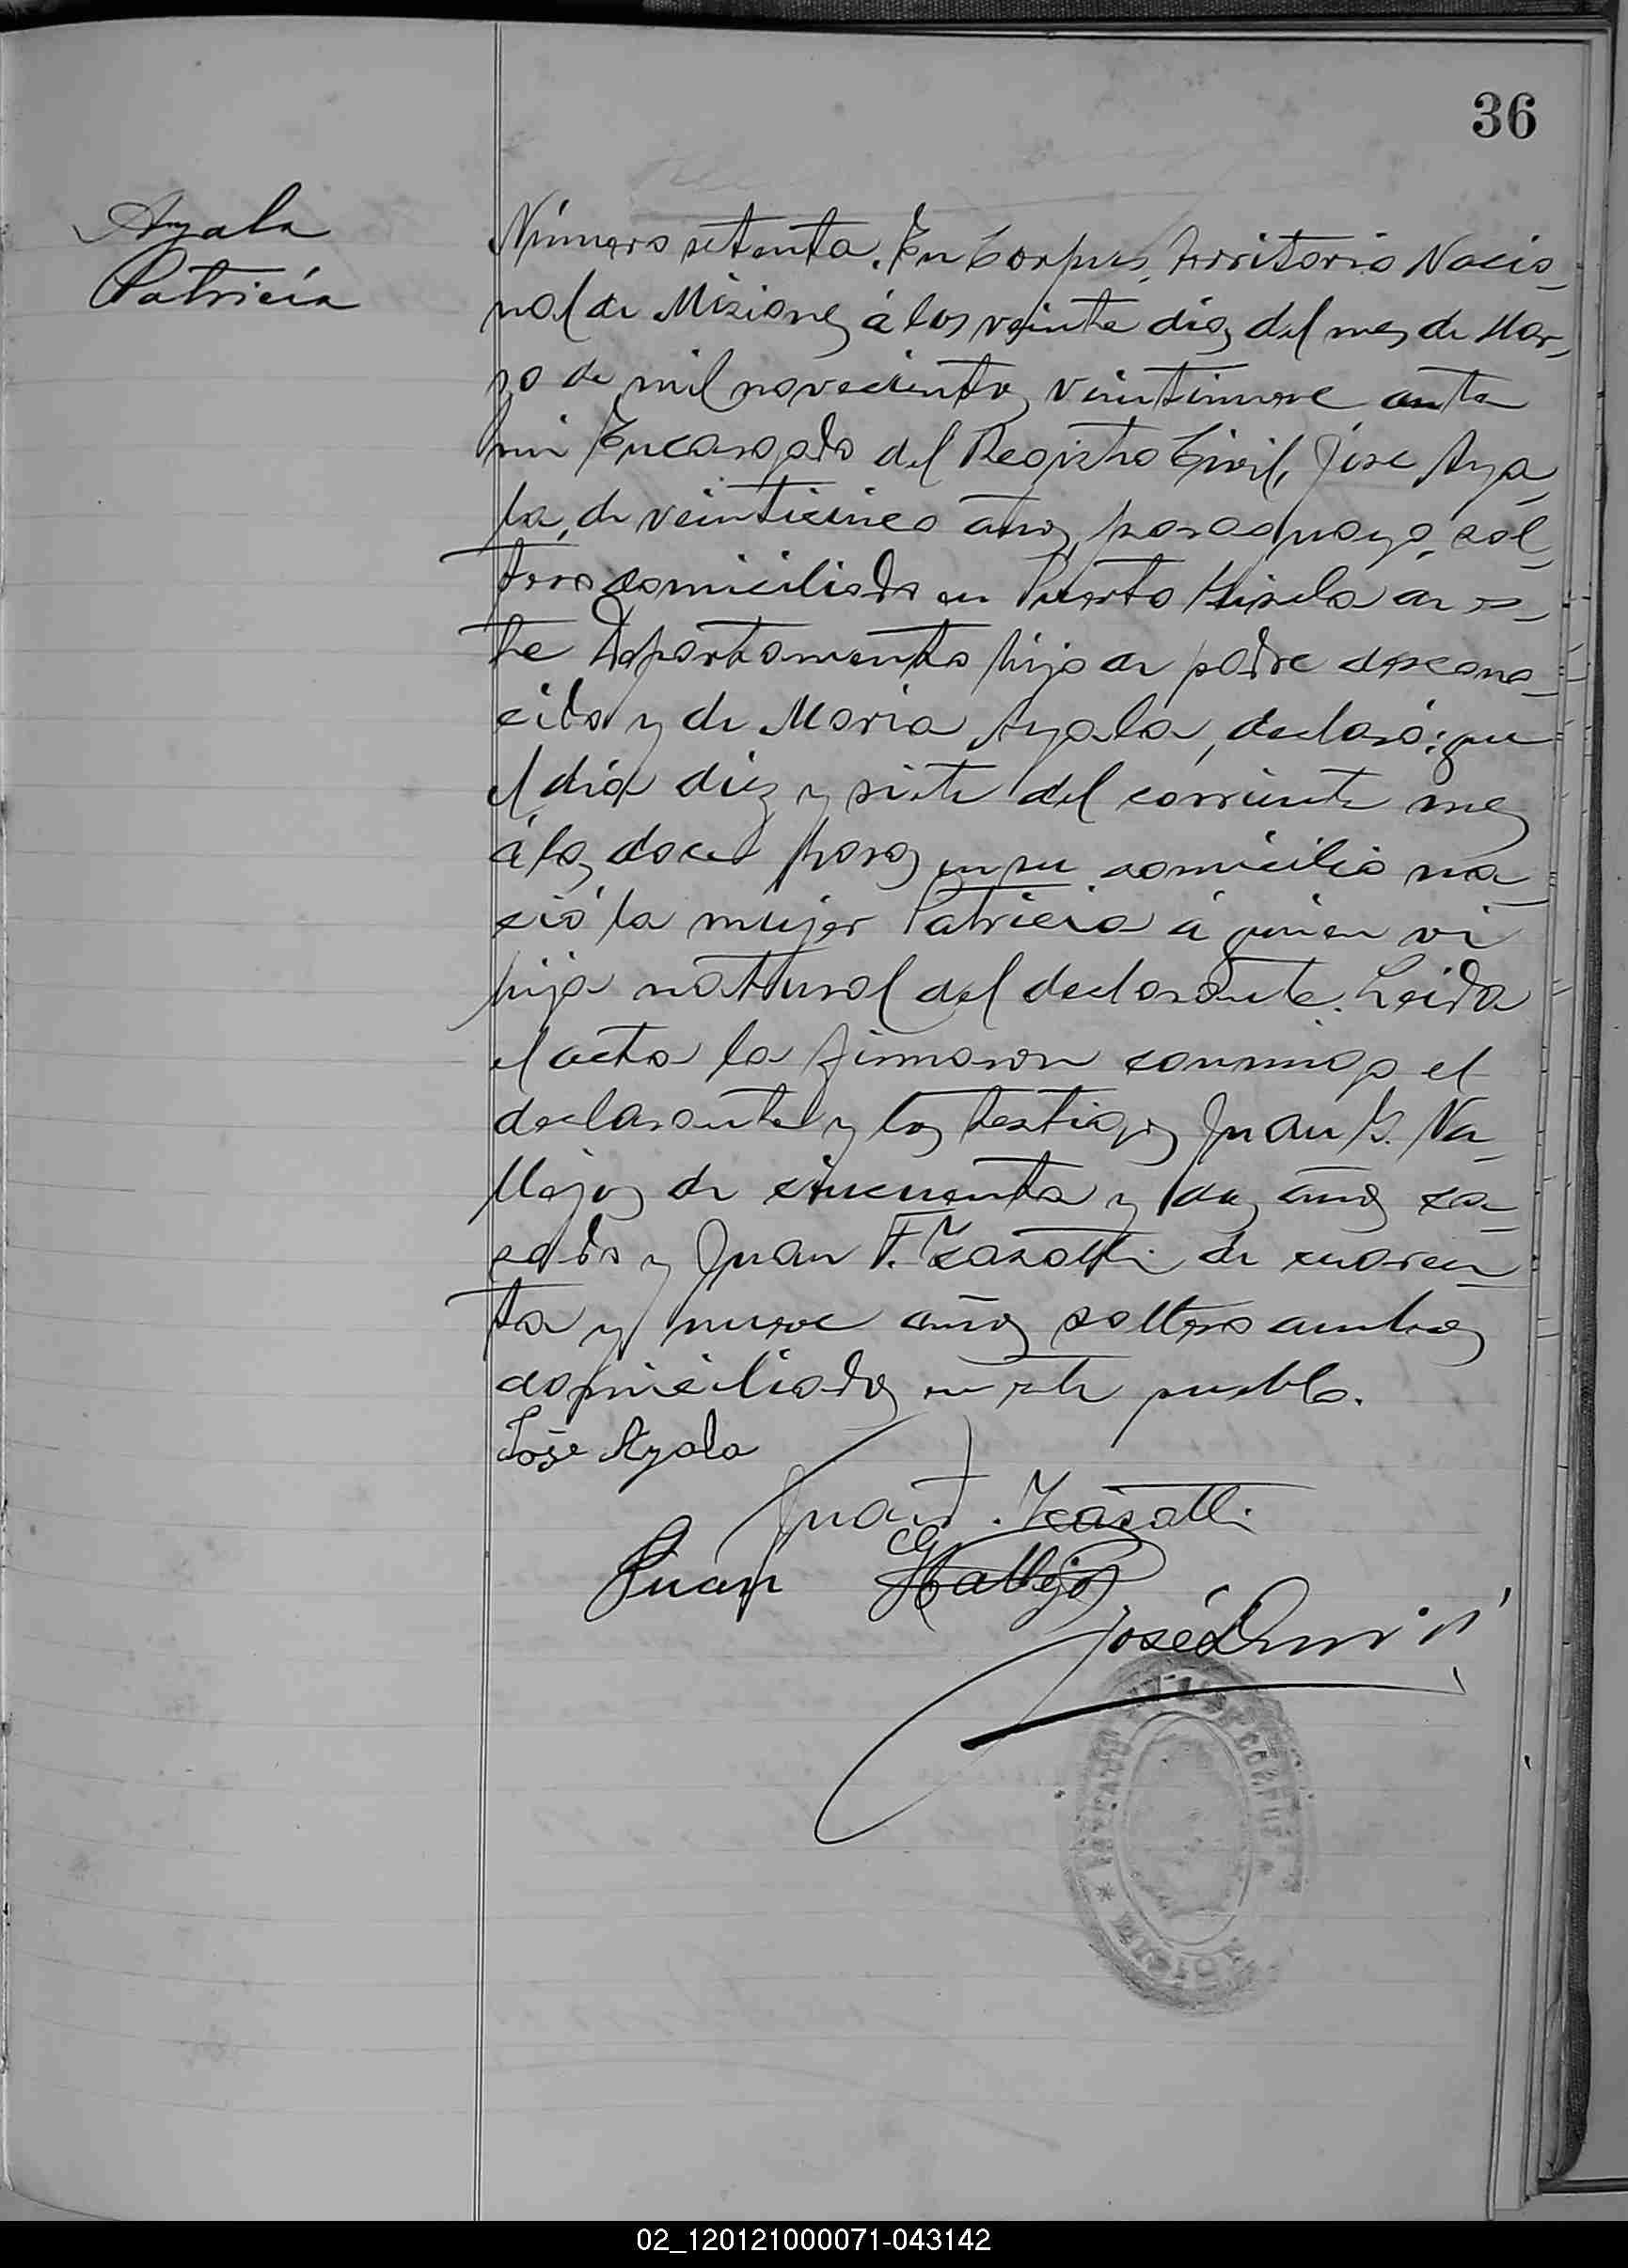 36
Ayala
Patricia
Número setenta. En Corpus, Territorio Nacio_
nal de Misiones á los veinte dias del mes de Mar_
zo de mil novecientos veintinueve ante
mi Encargado del Registro Civil, José Aya_
la, de veinticinco años, paraguayo, sol_
tero domiciliado en Puerto de es_
te Departamento hijo de padre descono_
cido y de Maria Ayala, declaró: que
el dia diez y siete del corriente mes
á las doce horas en su domicilio na_
ció la mujer Patricia á quien vi
hija natural del declarante. Leida
el acta la firmaron conmigo el
declarante y los testigos Juan G. Va_
llejos de cincuenta y dos años ca_
sado y Juan F. Zasatti de cuaren_
ta y nueve años soltero ambos
domiciliados en este pueblo.
José Ayala
Juan F. Zasatti
Juan G Vallejos
José
CORPUS
02_120121000071-043142